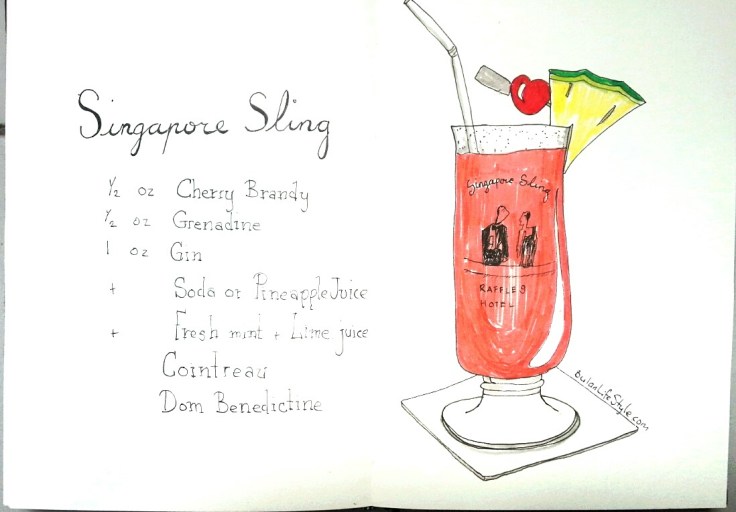 Singapore Sling
½ oz Cherry Brandy
½ oz Grenadine
1 oz Gin
+ Soda or Pineapple Juice
+ Fresh mint + Lime juice
Cointreau
Dom Benedictine
Singapore Sling
RAFFLES
HOTEL
BulanLifeStyle.com